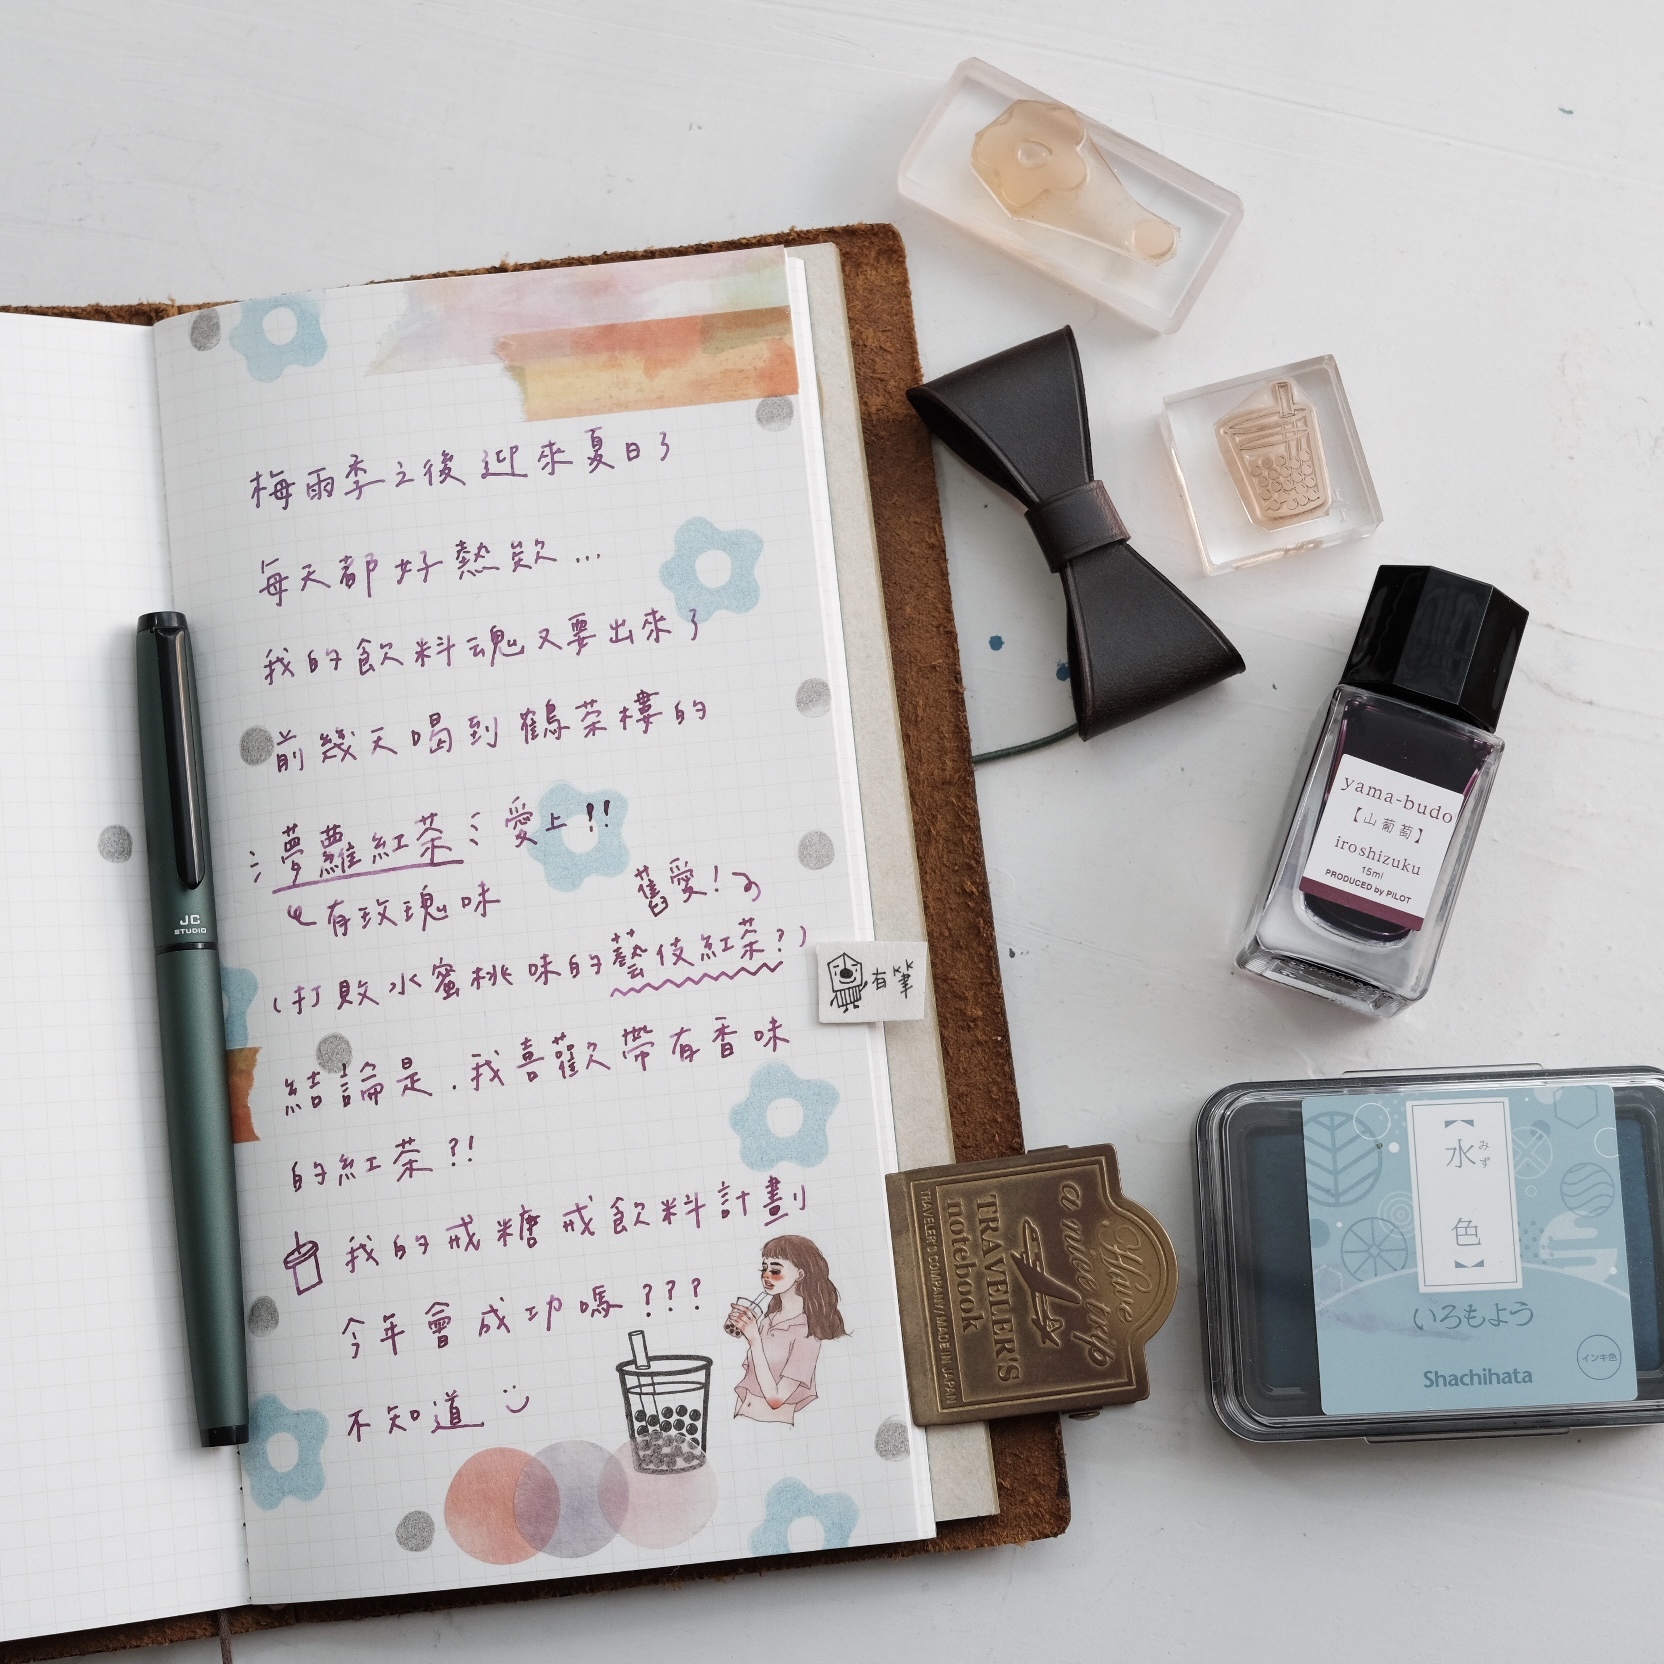 梅雨季之後迎來夏日了
每天都好熱欸...
我的飲料魂又要出來了
前幾天喝到鶴茶樓的
夢蘿紅茶 愛上!!
有玫瑰味
舊愛!
(打敗水蜜桃味的藝伎紅茶?)
結論是.我喜歡帶有香味
的紅茶?!
我的戒糖戒飲料計劃
今年會成功嗎???
不知道
JC
STUDIO
有筆
Have
a nice trip
TRAVELER'S
notebook
TRAVELER'S COMPANY/MADE IN JAPAN
yama-budo
【山葡萄】
iroshizuku
15ml
PRODUCED by PILOT
【水色】
みず
いろもよう
インキ色
Shachihata